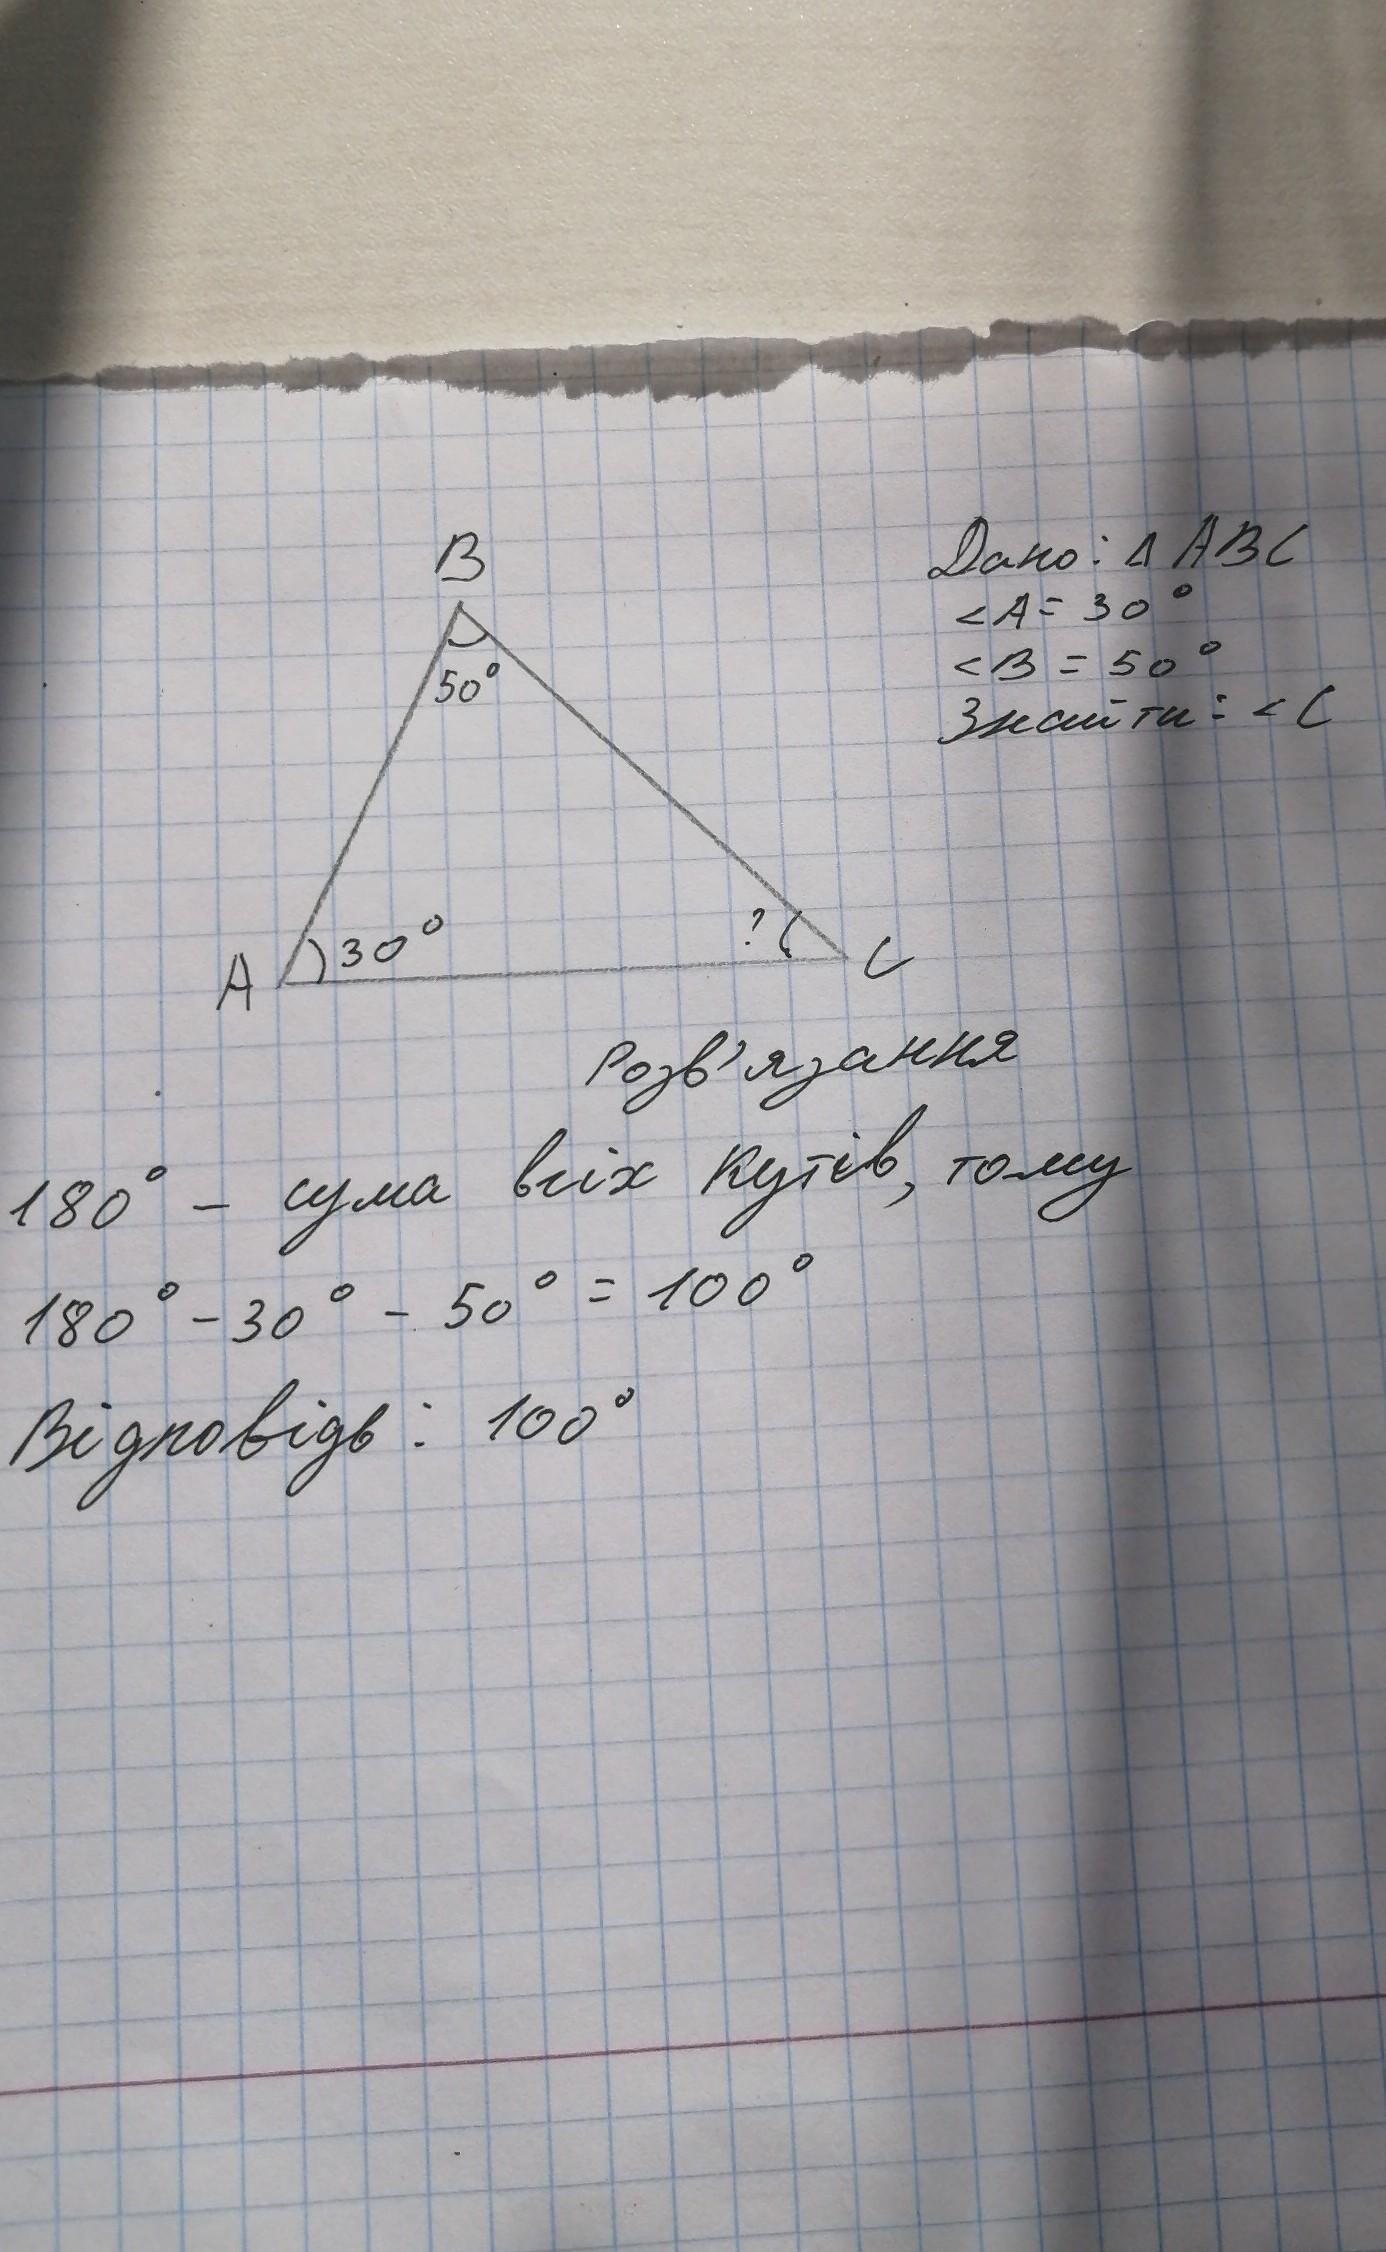 B
50°
A
30°
?
C
Дано: Δ ABC
<A = 30°
<B = 50°
Знайти: <C
Розв'язання
180° - сума всіх кутів, тому
180° - 30° - 50° = 100°
Відповідь: 100°